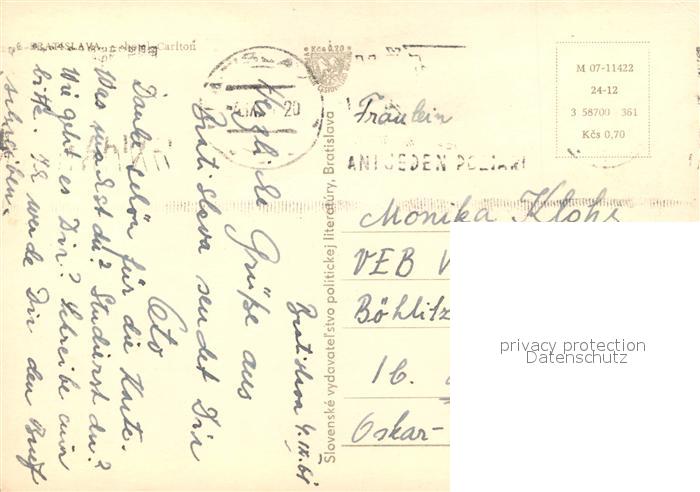 BRATISLAVA Carlton
Kčs 0,20
20
ANI JEDEN
M 07-11422
24-12
3 58700 361
Kčs 0,70
Slovenské vydavateľstvo politickej literatúry, Bratislava
Bratislava 4. IX. 61
Herzliche Grüße aus
Bratislava sendet Dir
Oto
Danke schön für die Karte.
Was warst du? Studierst du?
Wie geht es Dir? Schreibe mir
bitte. Ich werde Dir den Brief
schreiben.
Fräulein
Monika Klohs
VEB
Böhlitz
16.
Oskar-
privacy protection
Datenschutz